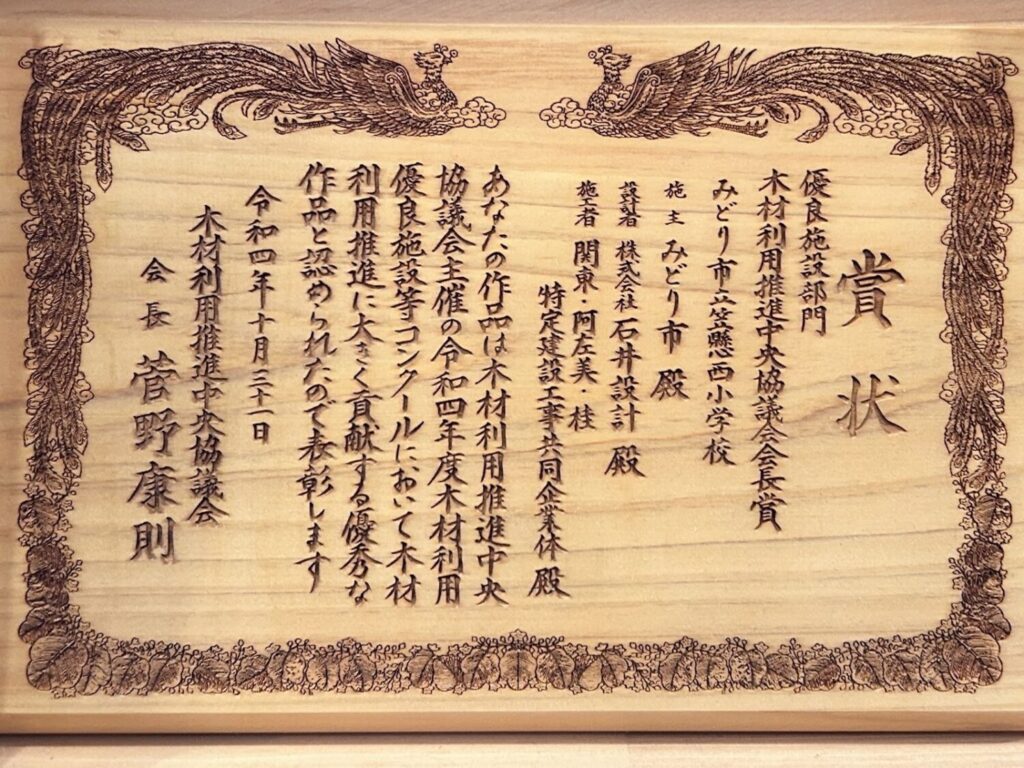 賞状
優良施設部門
木材利用推進中央協議会会長賞
みどり市立笠懸西小学校
施主 みどり市 殿
設計者 株式会社石井設計 殿
施工者 関東・阿左美・桂
特定建設工事共同企業体 殿
あなたの作品は木材利用推進中央
協議会主催の令和四年度木材利用
優良施設等コンクールにおいて木材
利用推進に大きく貢献する優秀な
作品と認められたので表彰します
令和四年十月三十一日
木材利用推進中央協議会
会長 菅野康則